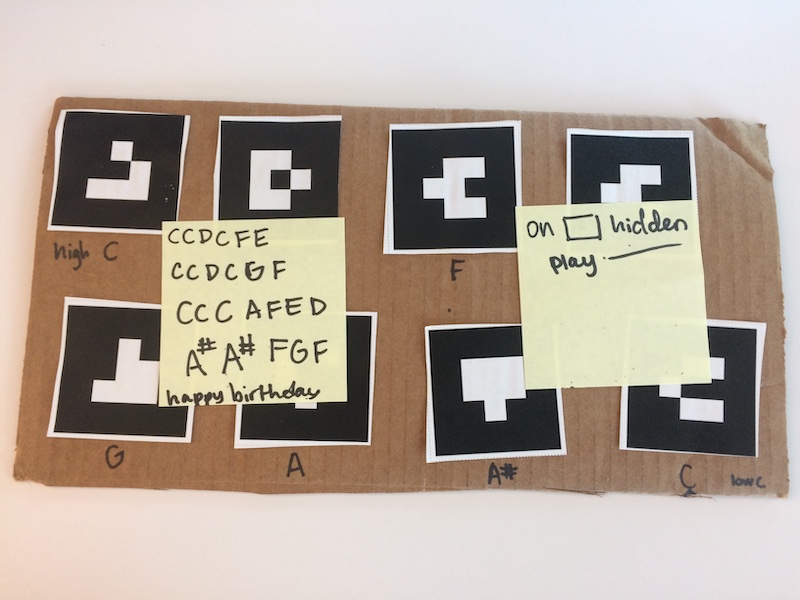 high C
F
CCDCFE
CCDCGF
CCC AFED
A# A# FGF
happy birthday
on hidden
play
G
A
A#
C
low C